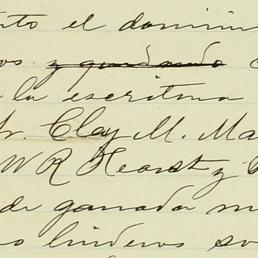 nto el domini
os y quedando
la escritura
Sr. Clay M. Ma
W R Hearst y
de ganado m
o linderos so